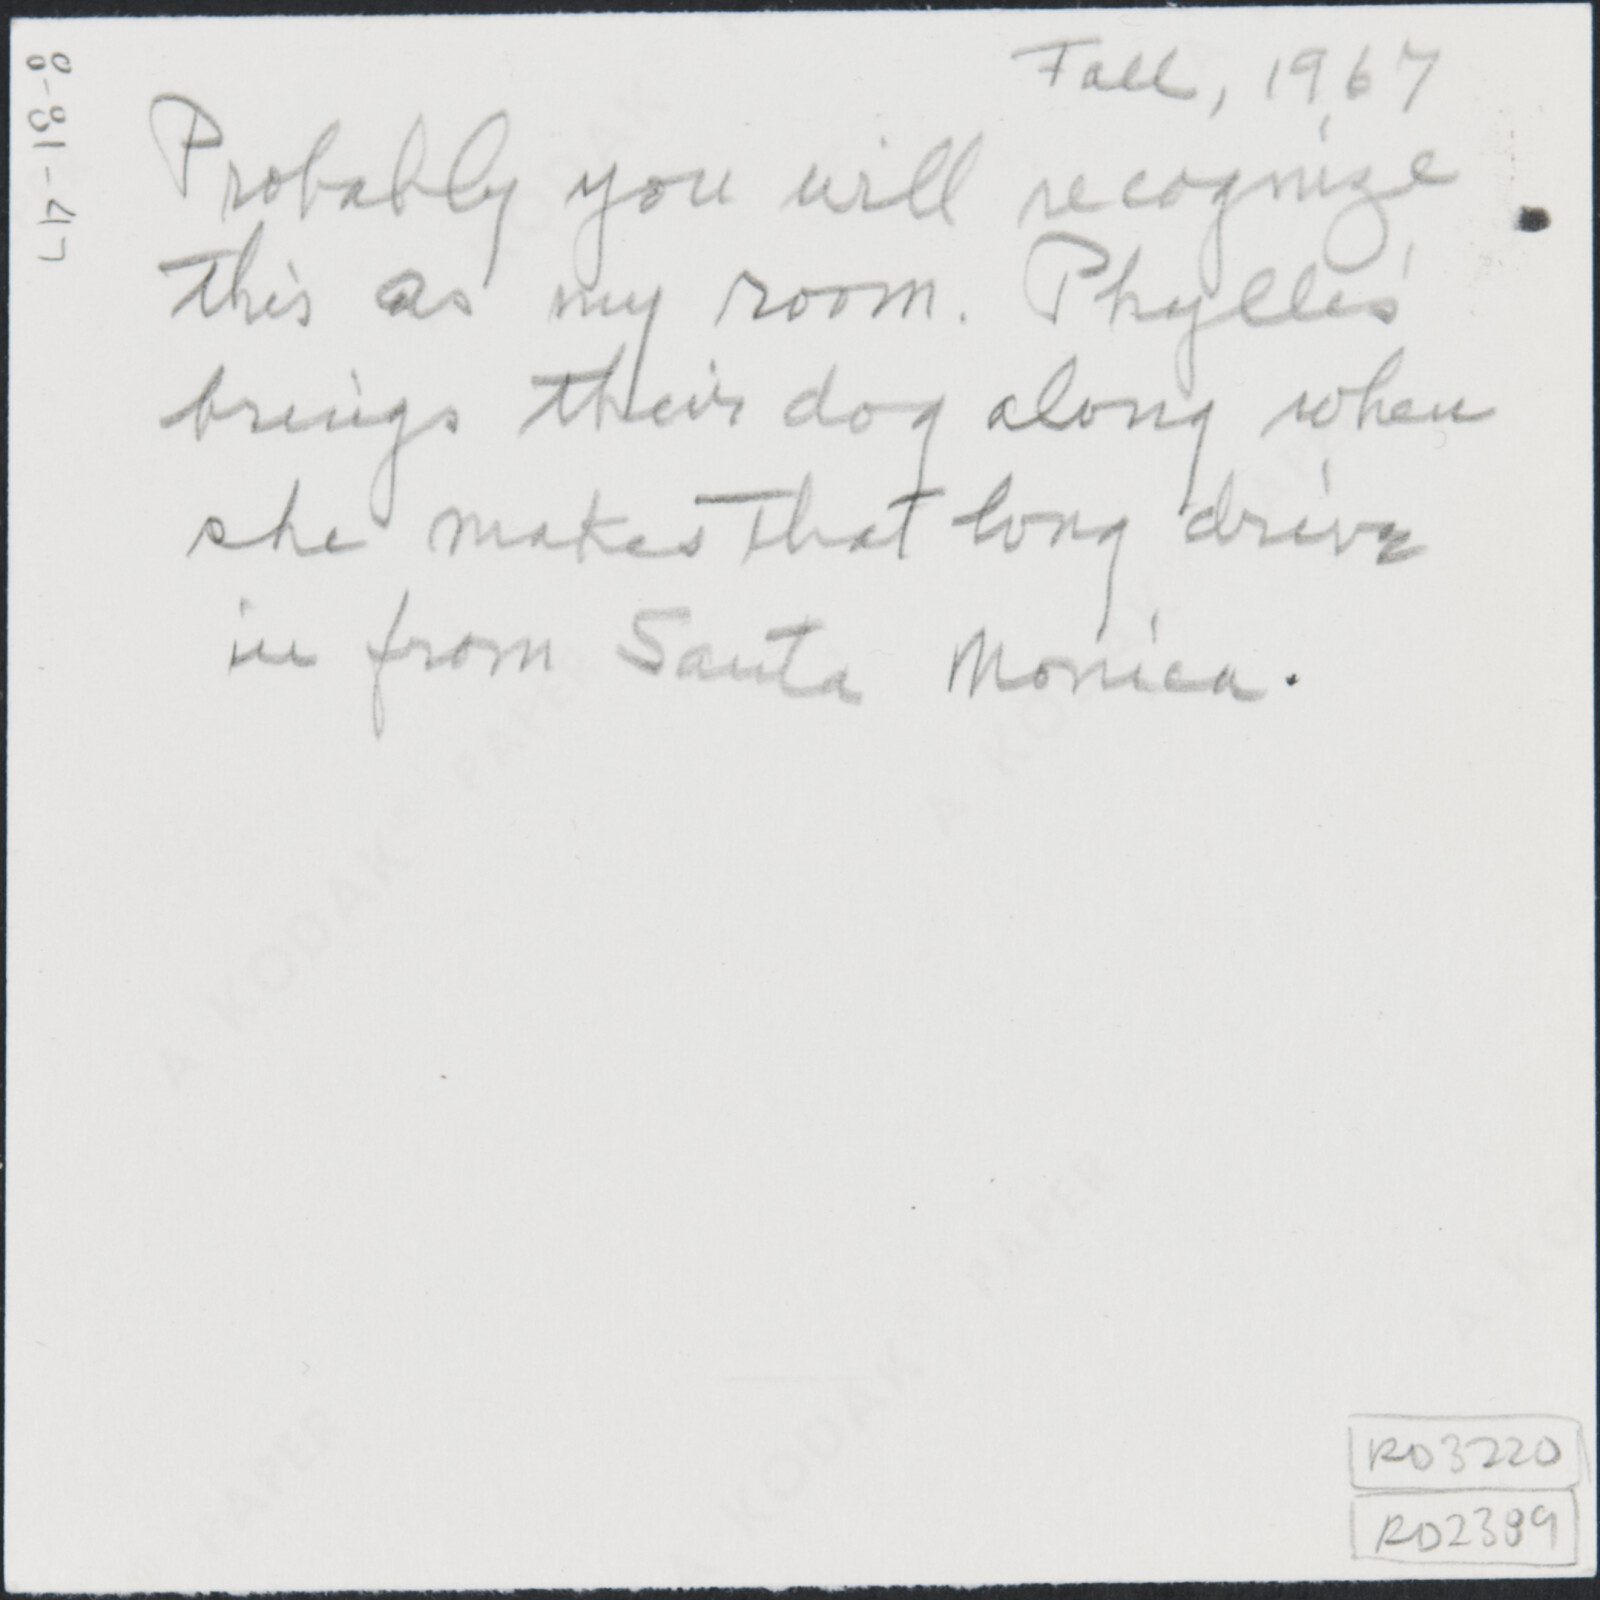 Fall, 1967
Probably you will recognize
this as my room. Phyllis
brings their dog along when
she makes that long drive
in from Santa Monica.
A KODAK® PAPER
RD3220
RD2389